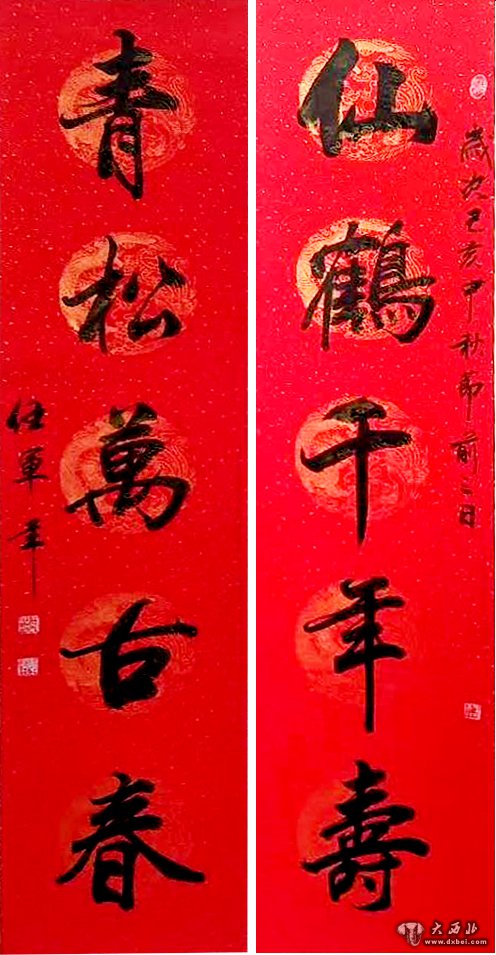 仙鶴千年壽
歲次己亥中秋節前二日
青松萬古春
任軍書
大西北
www.dxbei.com